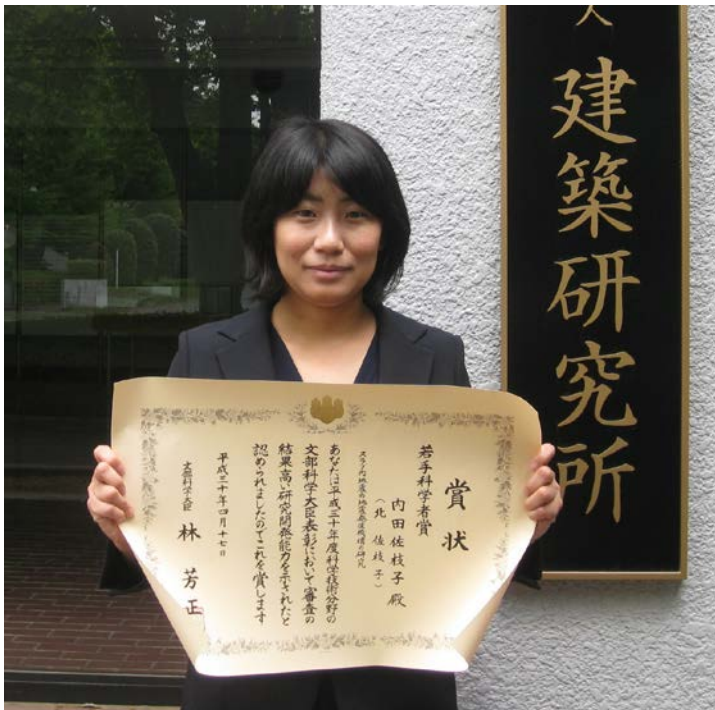 人 建築研究所
賞状
若手科学者賞
内田佐枝子殿
(北佐枝子)
スラブ内地震の地震発生機構の研究
あなたは平成三十年度科学技術分野の
文部科学大臣表彰において審査の
結果高い研究開発能力を示されたと
認められましたのでこれを賞します
平成三十年四月十七日
文部科学大臣 林芳正